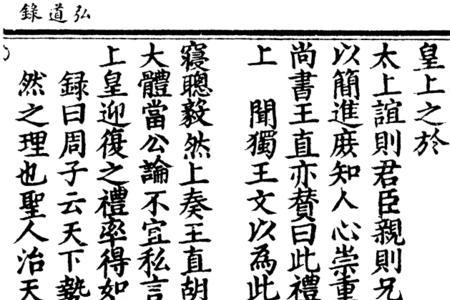 弘道錄
皇上之於
太上誼則君臣親則兄
以簡進庶知人心崇重
尚書王直亦賛曰此禮
上　聞獨王文以為此
寢聰毅然上奏王直胡
大體當公論不宜私言
上皇迎復之禮率得如
録曰周子云天下勢
然之理也聖人治天